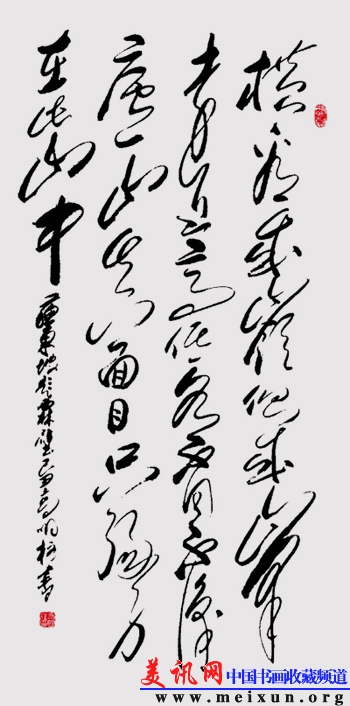 横看成岭侧成峰
远近高低各不同不识
庐山真面目只缘身
在此山中
美讯网 中国书画收藏频道
www.meixun.org